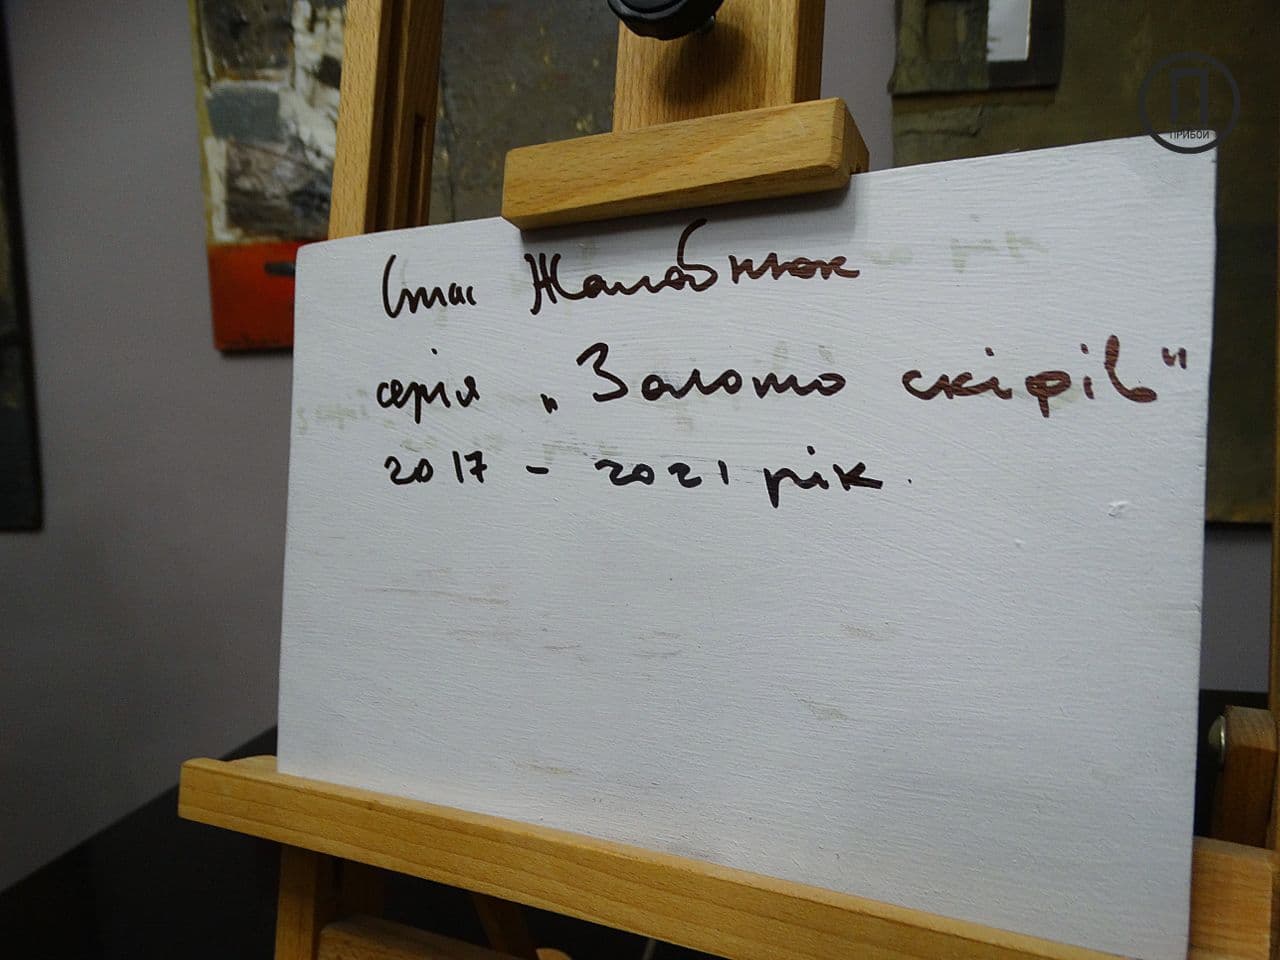 П
ПРИБОЙ
Стас Жалобнюк
серія „Золото скіфів"
2017 - 2021 рік.